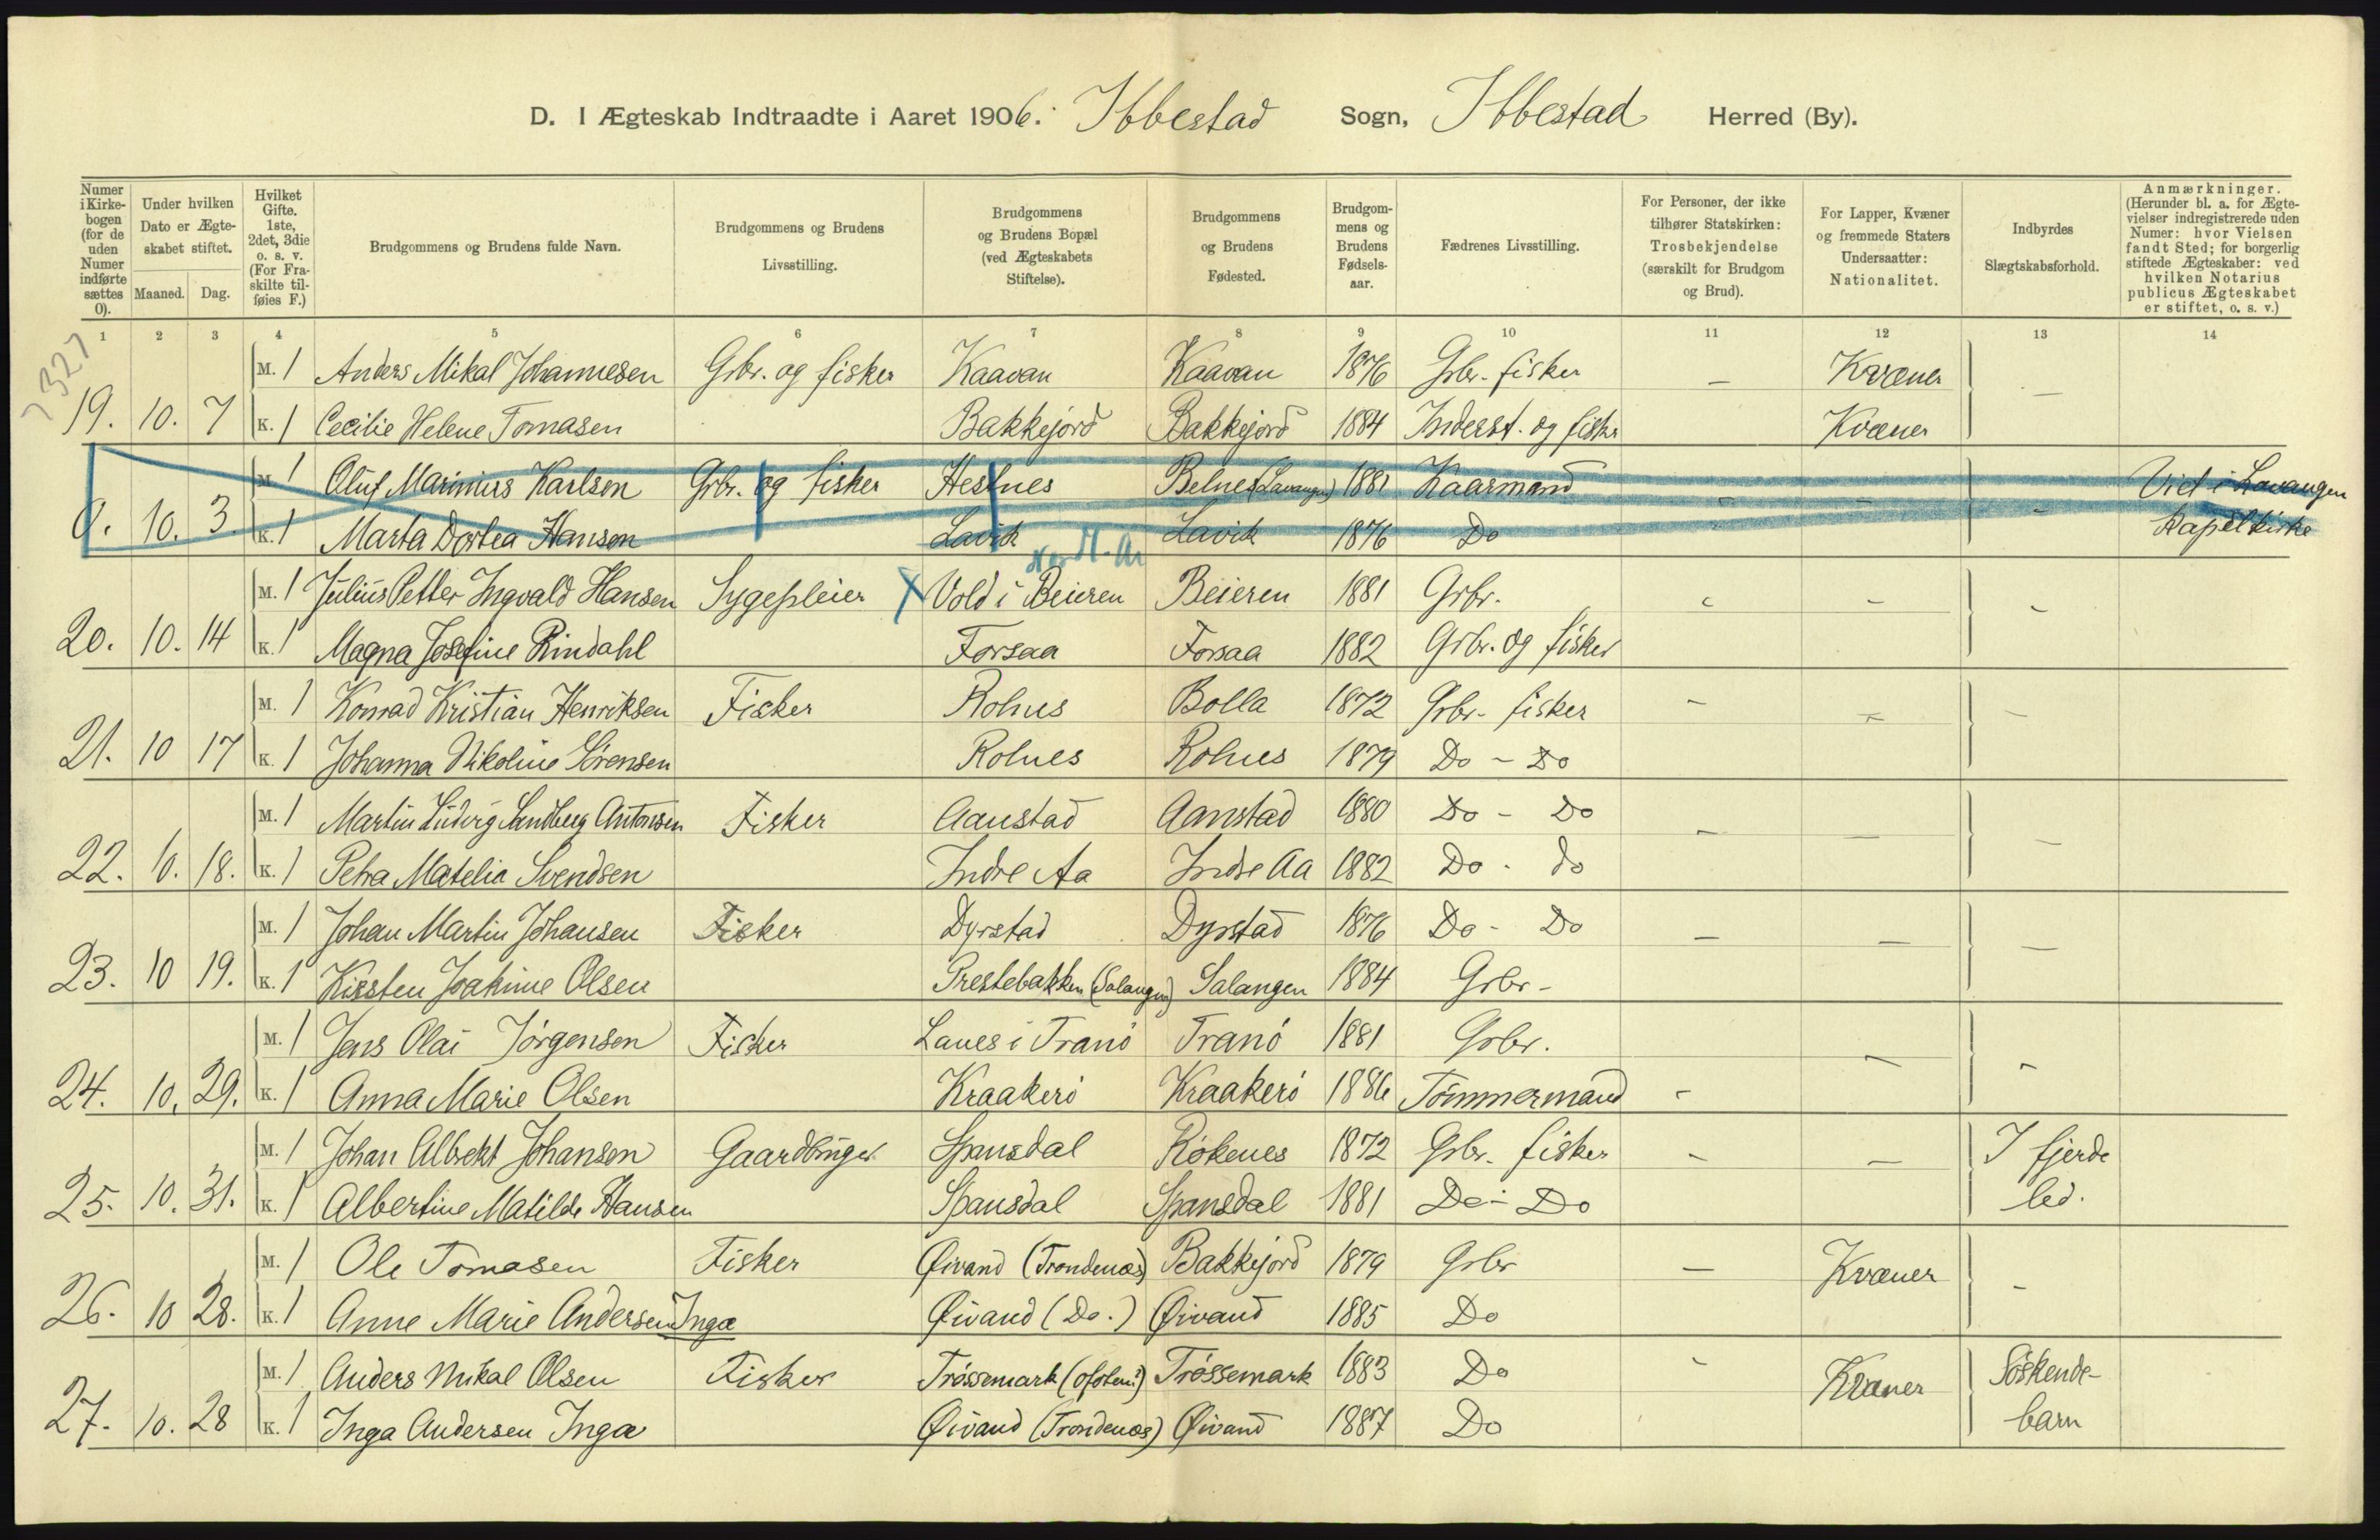 D. I Ægteskab Indtraadte i Aaret 1906. Ibbestad Sogn, Ibbestad Herred (By).
Numer i Kirkebogen (for de uden Numer indførte sættes 0).
Under hvilken Dato er Ægteskabet stiftet.
Maaned. Dag.
Hvilket Gifte. 1ste, 2det, 3die o. s. v. (For Fraskilte tilføies F.)
Brudgommens og Brudens fulde Navn.
Brudgommens og Brudens Livsstilling.
Brudgommens og Brudens Bopæl (ved Ægteskabets Stiftelse).
Brudgommens og Brudens Fødested.
Brudgommens og Brudens Fødselsaar.
Fædrenes Livsstilling.
For Personer, der ikke tilhører Statskirken: Trosbekjendelse (særskilt for Brudgom og Brud).
For Lapper, Kvæner og fremmede Staters Undersaatter: Nationalitet.
Indbyrdes Slægtskabsforhold.
Anmærkninger. (Herunder bl. a. for Ægtevielser indregistrerede uden Numer: hvor Vielsen fandt Sted; for borgerlig stiftede Ægteskaber: ved hvilken Notarius publicus Ægteskabet er stiftet, o. s. v.)
1 2 3 4 5 6 7 8 9 10 11 12 13 14
M. 1 Anders Mikal Johannesen Grbr. og fisker Kaavan Kaavan 1876 Grbr. fisker — Kvæner —
19. 10. 7 K. 1 Cecilie Helene Tomasen Bakkejord Bakkejord 1884 Inderst. og fisker Kvæner
M 1 Oluf Marinius Karlsen Grbr. og fisker Hesnes Belnes (Lavangen) 1881 Kaarmand - - - Viet i Lavangen
0. 10. 3. K. 1 Marta Dortea Hansen Lavik Lavik 1876 Do - Kapelkirke
Nordl. A
M. 1 Julius Petter Ingvald Hansen Sygepleier X Vold i Beieren Beieren 1881 Grbr. - - -
20. 10. 14 K. 1 Magna Josefine Rindahl Forsaa Forsaa 1882 Grbr. og fisker
M. 1 Konrad Kristian Henriksen Fisker Rolnes Bolla 1872 Grbr. fisker - - -
21. 10 17 K. 1 Johanna Nikoline Sörensen Rolnes Rolnes 1879 Do - Do
M. 1 Martin Ludvig Sandberg Antonsen Fisker Aanstad Aanstad 1880 Do - Do — — —
22. 10. 18. K. 1 Petra Matelia Svendsen Indre Aa Indre Aa 1882 Do - do
M. 1 Johan Martin Johansen Fisker Dyrstad Dyrstad 1876 Do - Do — — —
23. 10 19. K. 1 Kirsten Joakime Olsen Prestebakken (Salangen) Salangen 1884 Grbr -
M. 1 Jens Olai Jörgensen Fisker Lanes i Tranö Tranö 1881 Grbr. - -
24. 10. 29. K. 1 Anna Marie Olsen Kraakerö Kraakerö 1886 Tömmermand -
M. 1 Johan Albrekt Johansen Gaardbruger Spansdal Rökenes 1872 Grbr. fisker - — I fjerde
25. 10. 31. K. 1 Albertine Matilde Hansen Spansdal Spansdal 1881 Do - Do led.
M. 1 Ole Tomasen Fisker Øivand (Trondenæs) Bakkejord 1879 Grbr — Kvæner -
26. 10 28. K. 1 Anne Marie Andersen Inga Øivand (Do.) Øivand 1885 Do
M. 1 Anders Mikal Olsen Fisker Trössemark (Ofoten) Trössemark 1883 Do - Kvæner Söskende-
27. 10. 28 K. 1 Inga Andersen Inga Øivand (Trondenæs) Øivand 1887 Do barn